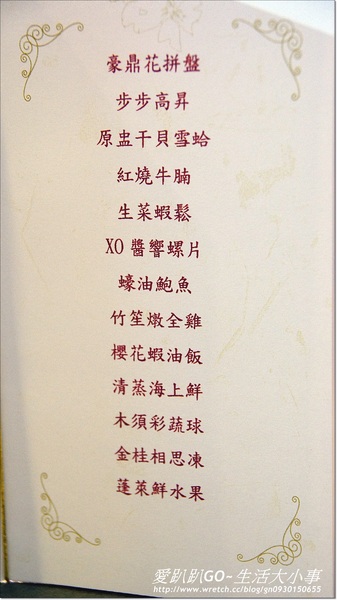 豪鼎花拼盤
步步高昇
原盅干貝雪蛤
紅燒牛腩
生菜蝦鬆
XO醬響螺片
蠔油鮑魚
竹笙燉全雞
櫻花蝦油飯
清蒸海上鮮
木須彩蔬球
金桂相思凍
蓬萊鮮水果
愛趴趴GO-生活大小事
http://www.wretch.cc/blog/gn0930150655